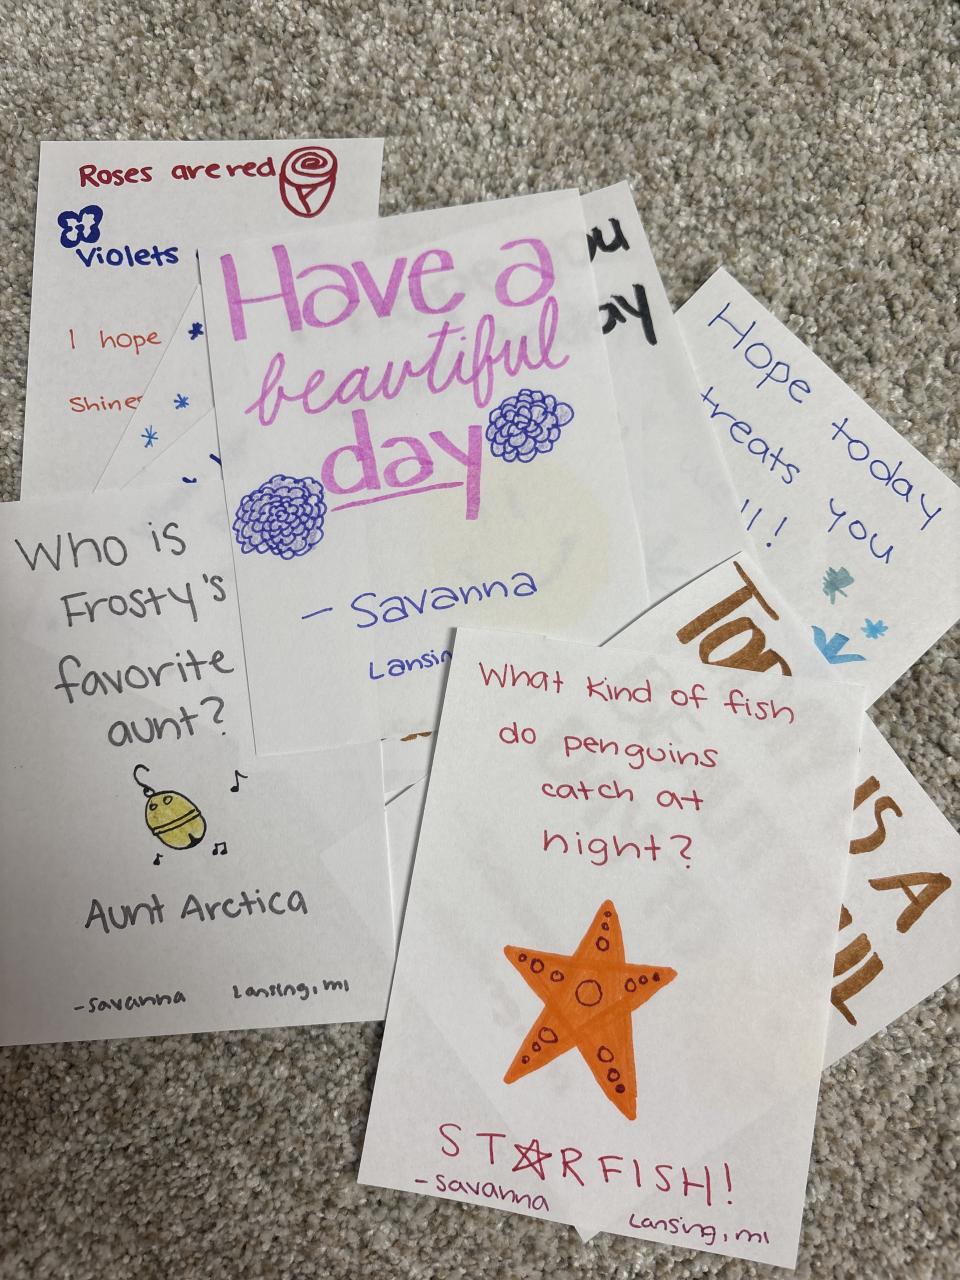 Roses are red
Violets
I hope
Shines
Have a
beautiful
day
- Savanna
Hope today
treats you
Who is
Frosty's
favorite
aunt?
Aunt Arctica
-Savanna Lansing, MI
What kind of fish
do penguins
catch at
night?
STARFISH!
-Savanna
Lansing, MI
IS A